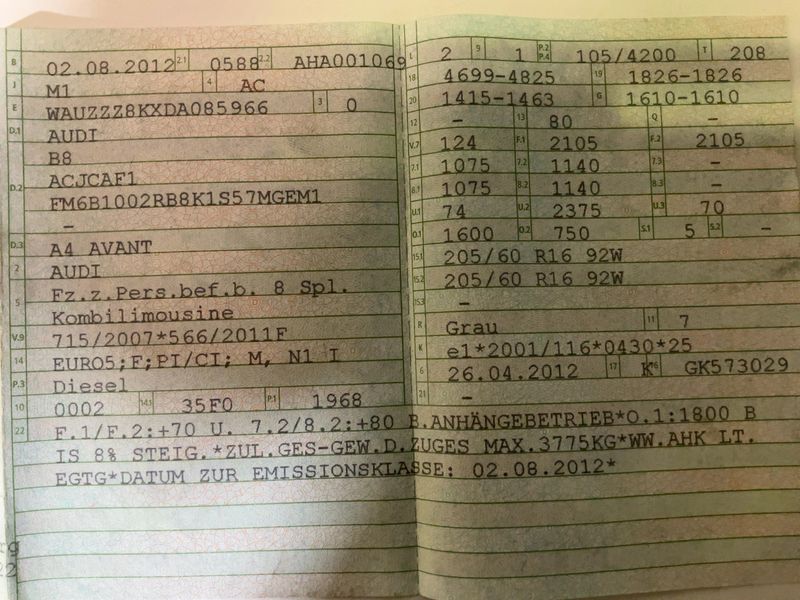 B 02.08.2012 2.1 0588 2.2 AHA001069
J M1 4 AC
E WAUZZZ8KXDA085966 3 0
D.1 AUDI
B8
D.2 ACJCAF1
FM6B1002RB8K1S57MGEM1
-
D.3 A4 AVANT
2 AUDI
5 Fz.z.Pers.bef.b. 8 Spl.
Kombilimousine
V.9 715/2007*566/2011F
14 EURO5;F;PI/CI; M, N1 I
P.3 Diesel
10 0002 14.1 35F0 P.1 1968
L 2 9 1 P.2 P.4 105/4200 T 208
18 4699-4825 19 1826-1826
20 1415-1463 G 1610-1610
12 - 13 80 Q -
V.7 124 F.1 2105 F.2 2105
7.1 1075 7.2 1140 7.3 -
8.1 1075 8.2 1140 8.3 -
U.1 74 U.2 2375 U.3 70
O.1 1600 O.2 750 S.1 5 S.2 -
15.1 205/60 R16 92W
15.2 205/60 R16 92W
15.3 -
R Grau 11 7
K e1*2001/116*0430*25
6 26.04.2012 17 K 16 GK573029
21 -
22 F.1/F.2:+70 U. 7.2/8.2:+80 B.ANHÄNGEBETRIEB*O.1:1800 B
IS 8% STEIG.*ZUL.GES-GEW.D.ZUGES MAX.3775KG*WW.AHK LT.
EGTG*DATUM ZUR EMISSIONSKLASSE: 02.08.2012*